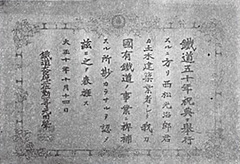 鐵道五十年祝典ヲ擧行
スルニ方リ西松光治郎君
カ土木建築業者トシテ我カ
國有鐵道ノ事業ニ裨補
スル所尠カラサルヲ認メ
茲ニ之ヲ表彰ス
大正十年十月十四日